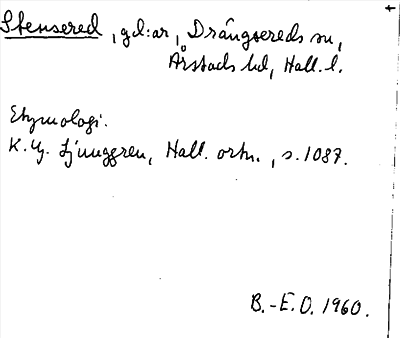 Stensered, gd:ar, Drängsereds sn,
Årstads hd, Hall. l.
Etymologi.
K. G. Ljunggren, Hall. ortn., s. 1087.
B.-E. O. 1960.